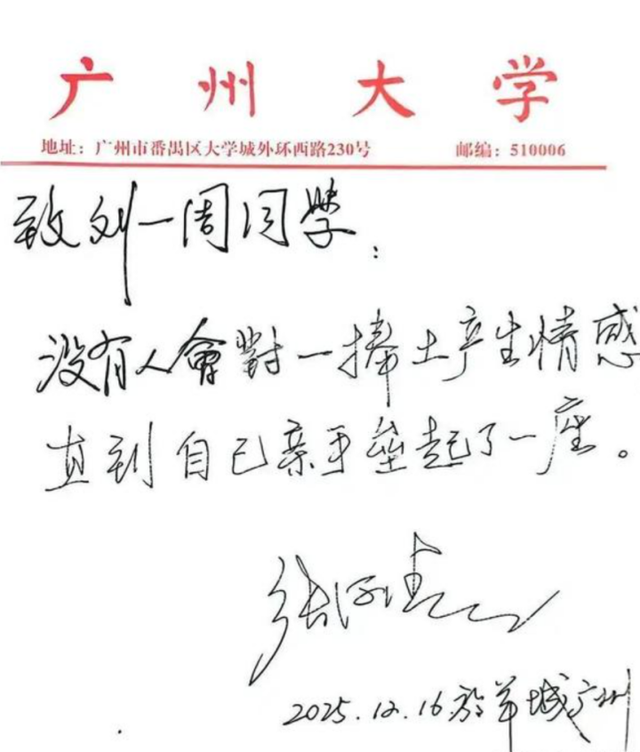 广州大学
地址：广州市番禺区大学城外环西路230号 邮编：510006
致刘一周同学：
没有人會對一捧土产生情感
直到自己亲手垒起了一座。
张
2025.12.16於羊城广州